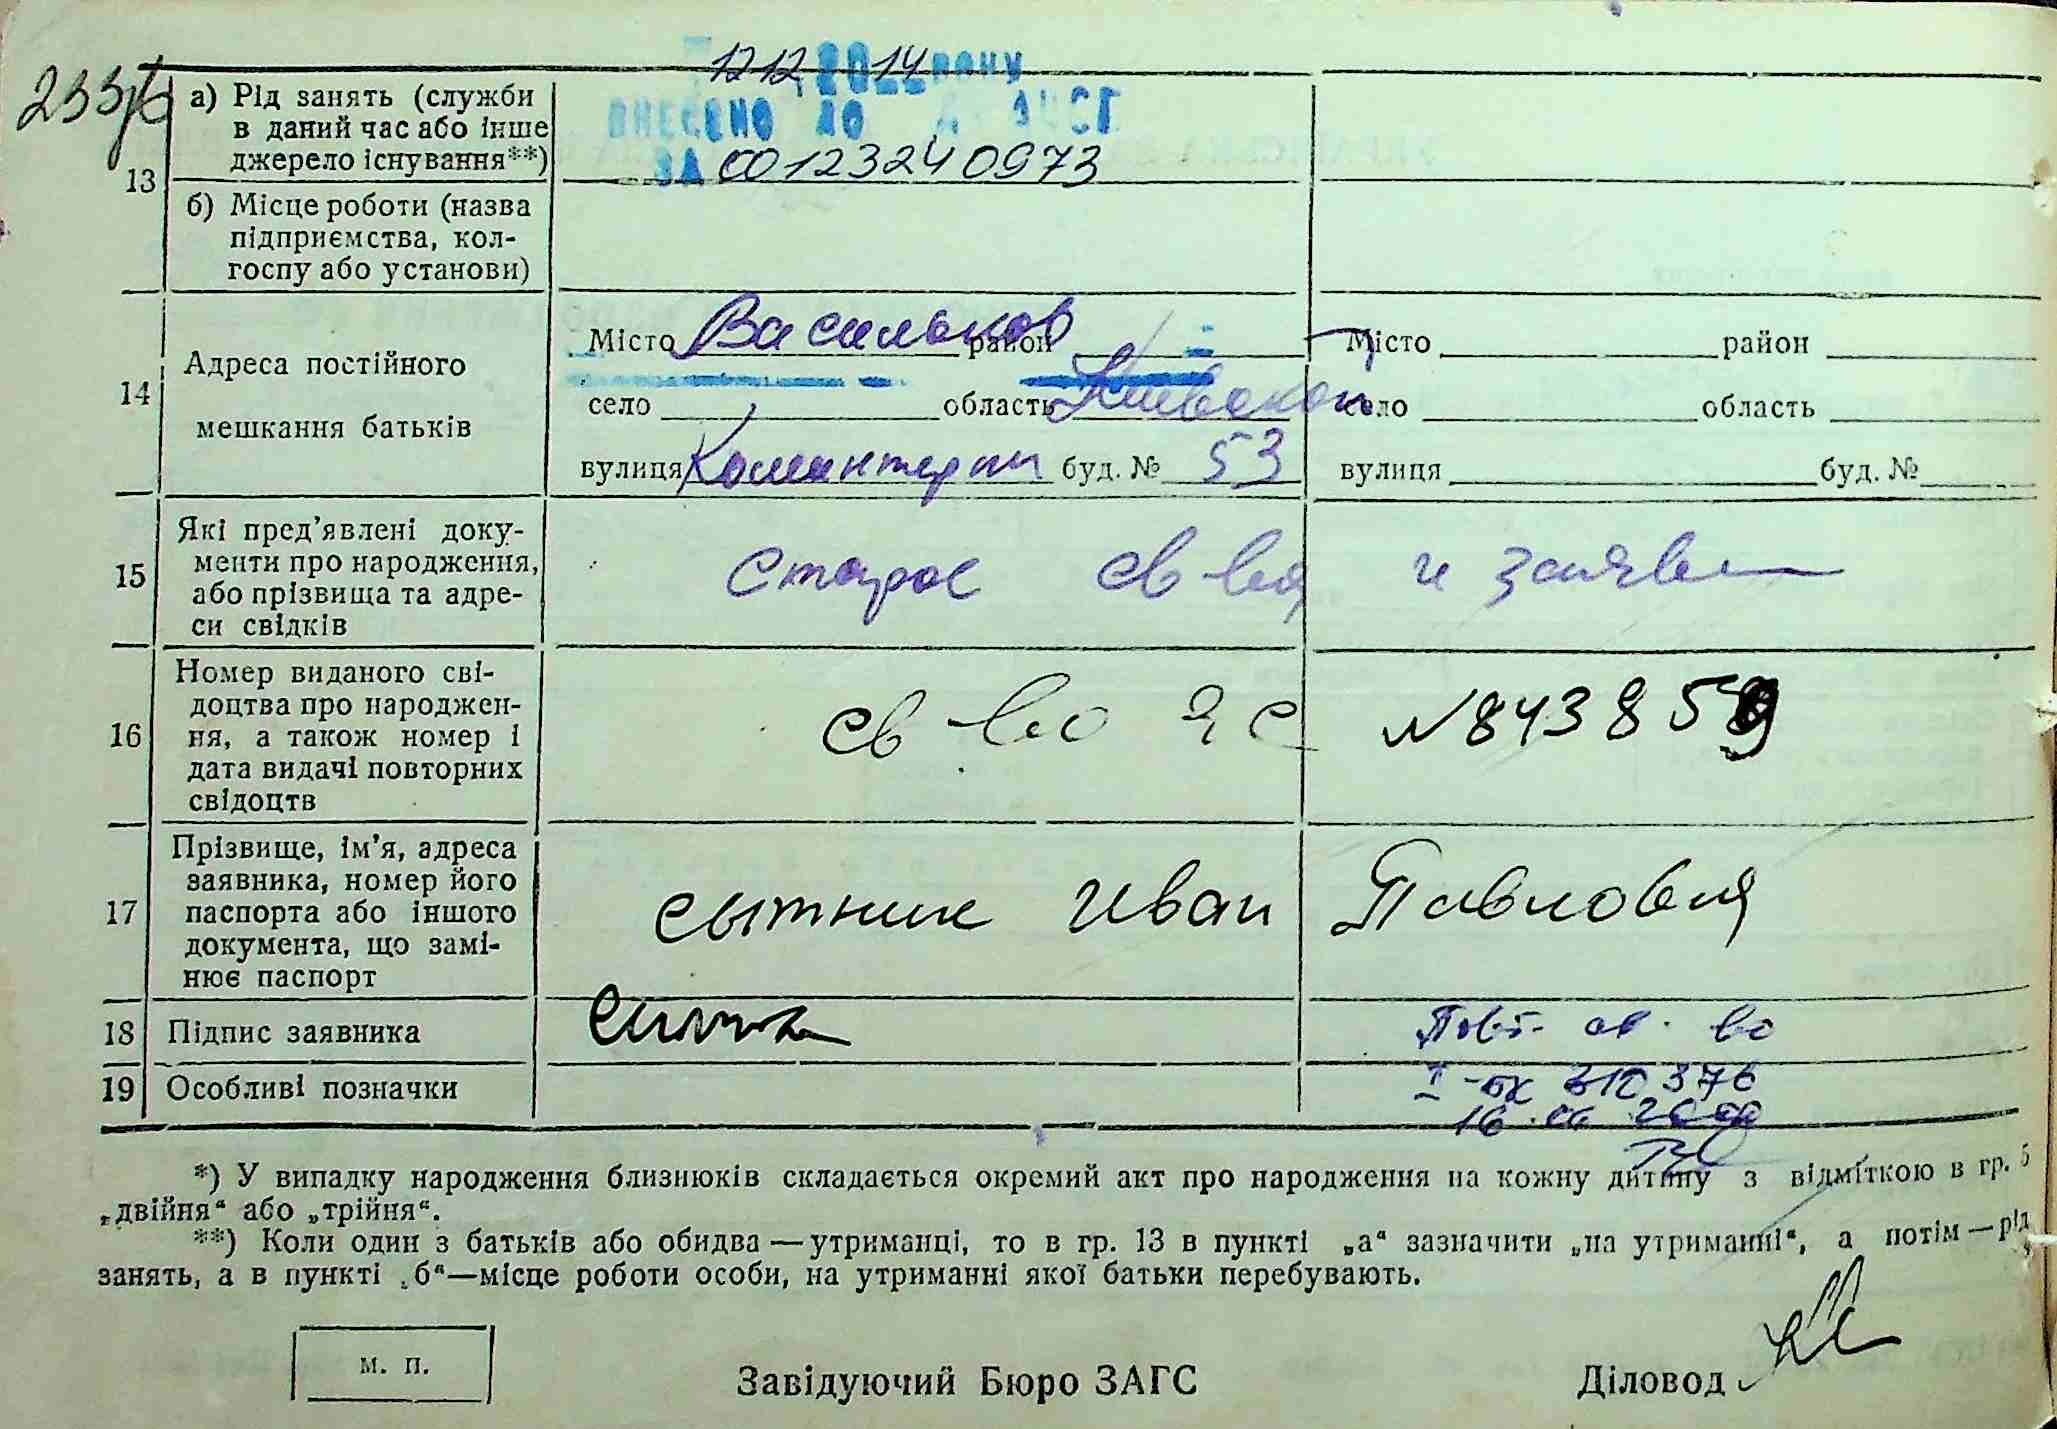 12 12 2014 року
ВНЕСЕНО ДО ДРАЦСГ
ЗА 00123240973
233/6
13
а) Рід занять (служби
в даний час або інше
джерело існування**)
б) Місце роботи (назва
підприємства, кол-
госпу або установи)
14
Адреса постійного
мешкання батьків
Місто Васильков район
село область Киевской
вулиця Коминтерна буд. № 53
Місто район
село область
вулиця буд. №
15
Які пред’явлені доку-
менти про народження,
або прізвища та адре-
си свідків
старое св во и заявл
16
Номер виданого сві-
доцтва про народжен-
ня, а також номер і
дата видачі повторних
свідоцтв
св-во ЯС №843859
17
Прізвище, ім’я, адреса
заявника, номер його
паспорта або іншого
документа, що замі-
нює паспорт
Сытник Иван Павлович
18 Підпис заявника
Повт. св-во
19 Особливі позначки
I-БК 310376
2000
*) У випадку народження близнюків складається окремий акт про народження на кожну дитину з відміткою в гр. 5
„двійня“ або „трійня“.
**) Коли один з батьків або обидва — утриманці, то в гр. 13 в пункті „а“ зазначити „на утриманні“, а потім — рід
занять, а в пункті „б“—місце роботи особи, на утриманні якої батьки перебувають.
м. п.
Завідуючий Бюро ЗАГС
Діловод